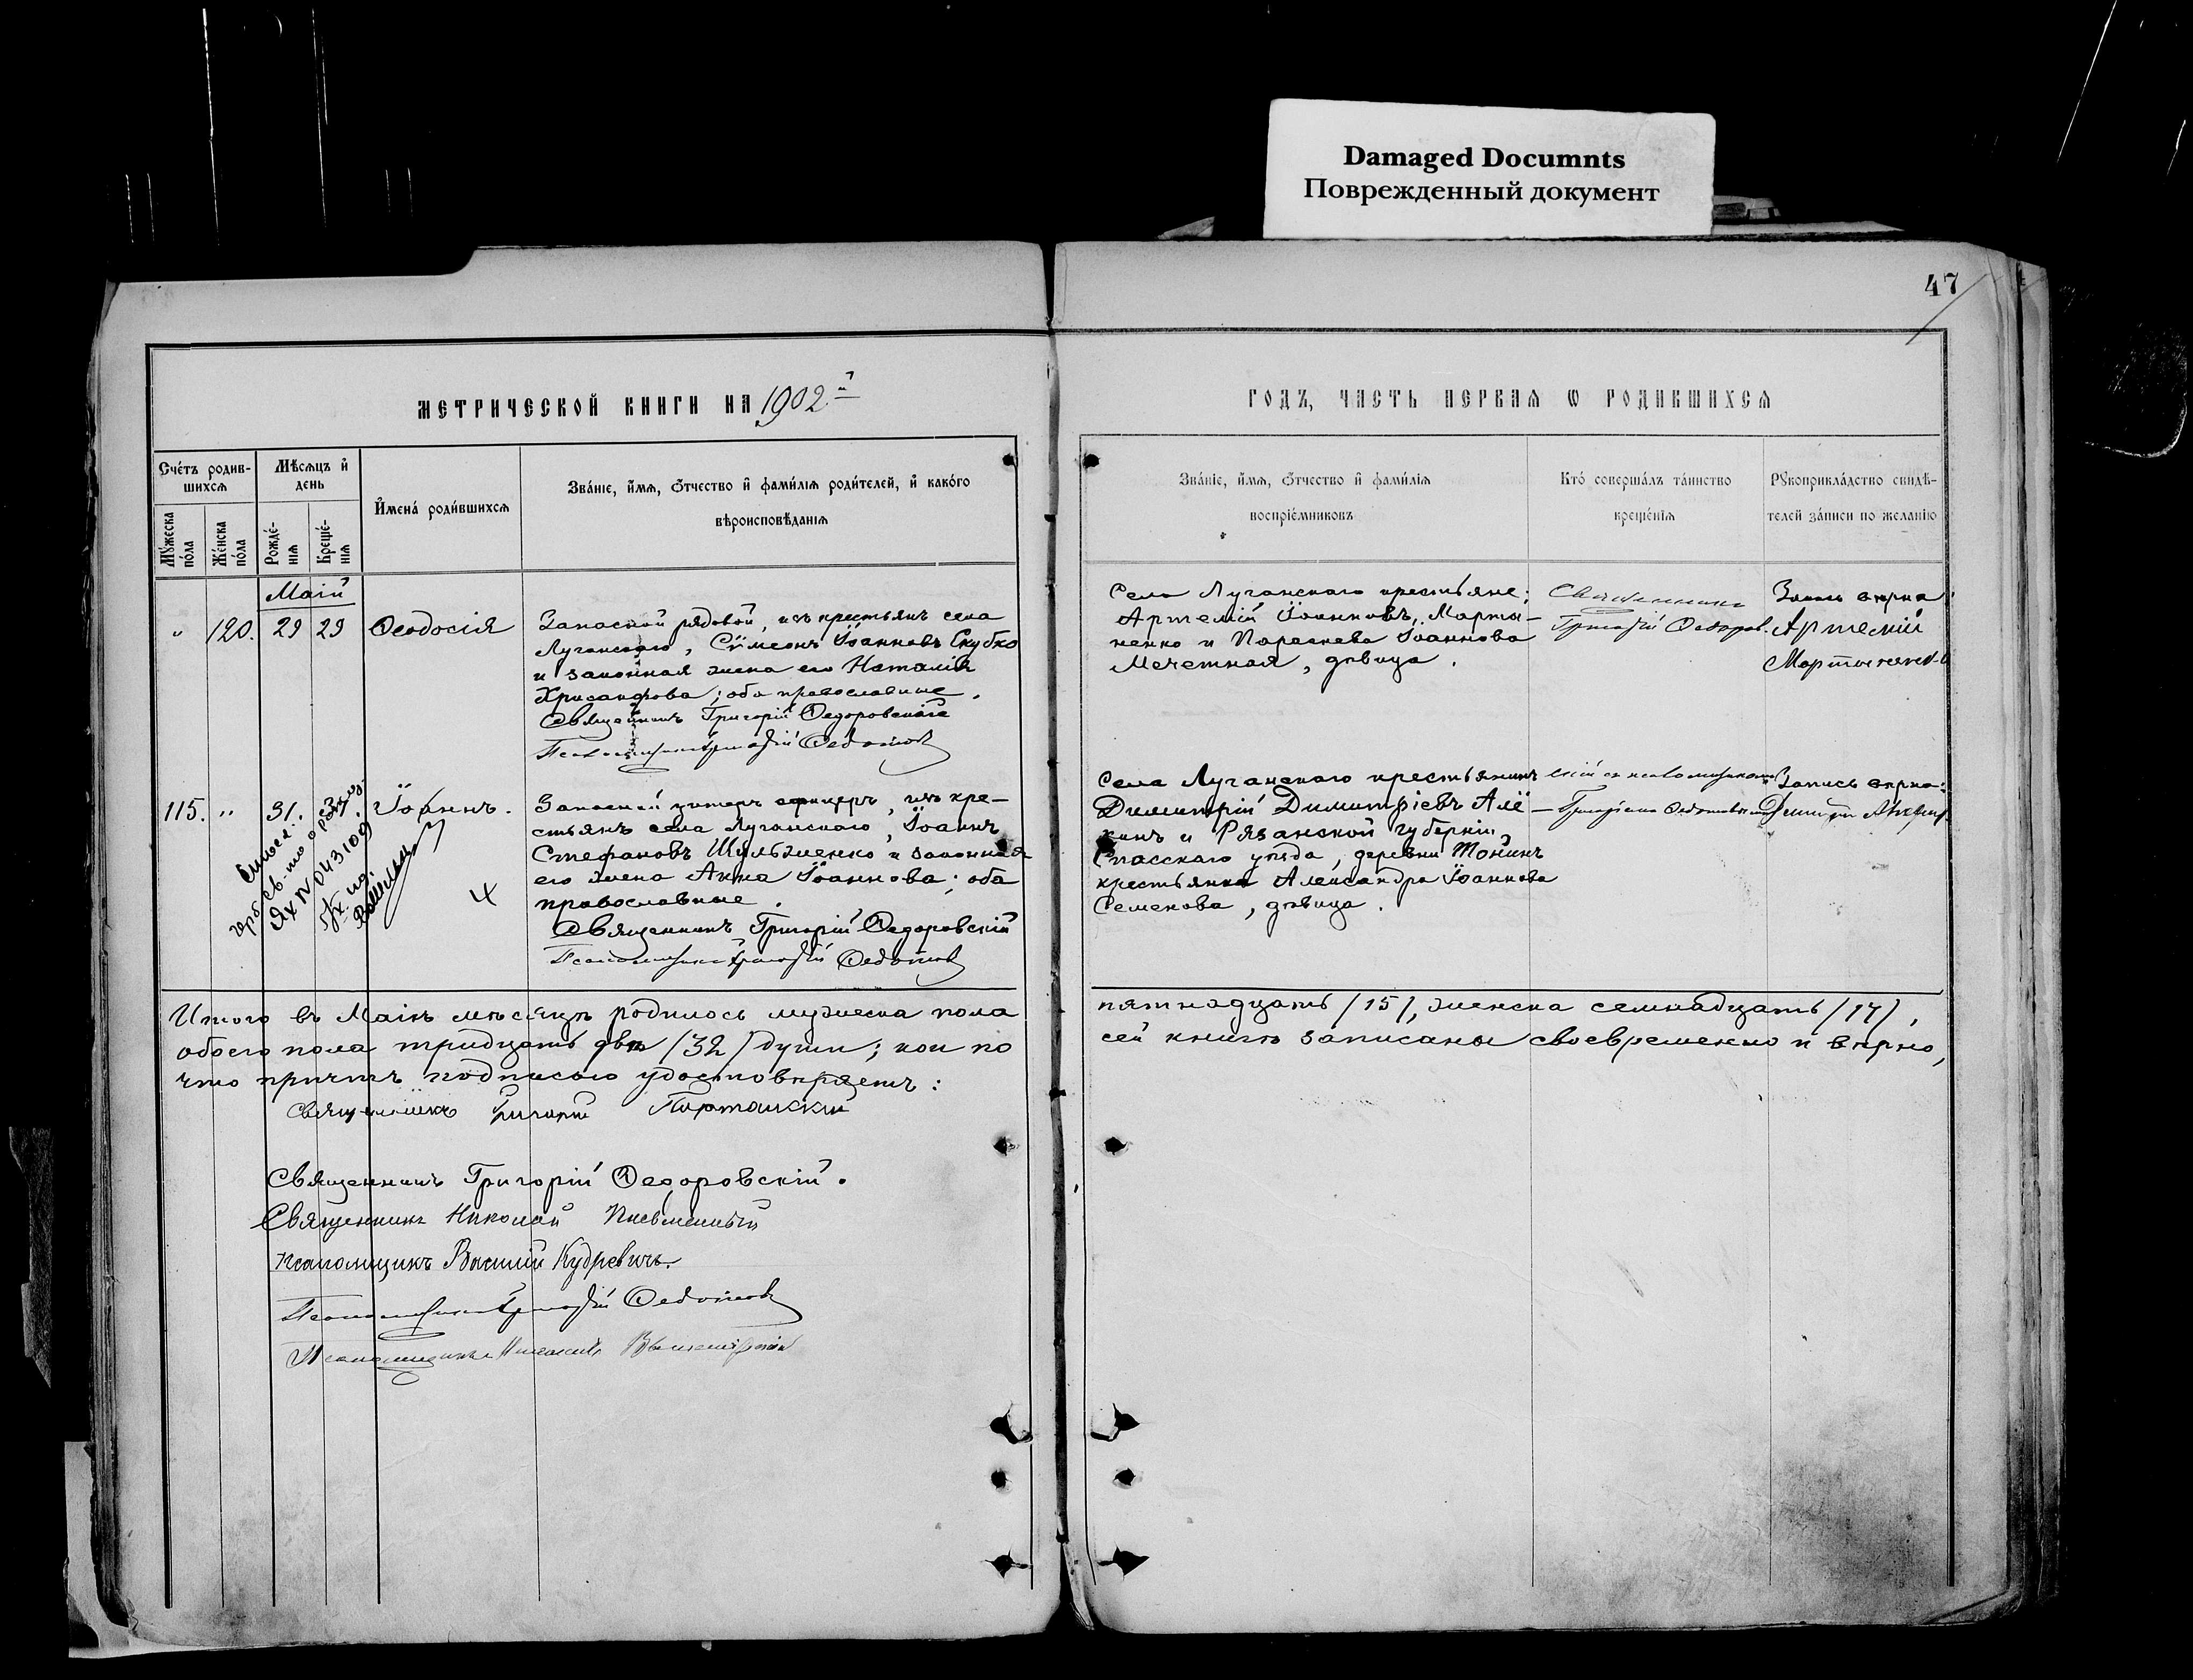 Damaged Documnts
Поврежденный документ
47
МЕТРИЧЕСКОЙ КНИГИ НА 1902й
ГОДЪ, ЧАСТЬ ПЕРВАЯ Ѡ РОДИВШИХСЯ
Счéтъ родив-
шихсѧ
Мѣсѧцъ и҆
день
Мꙋ́жеска
по́ла
Же́нска
по́ла
Рожде́-
нїѧ
Креще́-
нїѧ
И҆мена́ роди́вшихсѧ
Зва́нїе, и҆́мѧ, ѻ҆́тчество и҆ фами́лїѧ роди́телей, и҆ како́гѡ
вѣроисповѣ́данїѧ
Зва́нїе, и҆́мѧ, ѻ҆́тчество и҆ фами́лїѧ
воспрїе́мниковъ
Кто́ соверша́лъ та́инство
креще́нїѧ
Рꙋкоприкла́дство свидѣ́-
телей за́писи по жела́нїю
Маiй
" 120. 29 29 Ѳеодосія
Запасной рядовой, изъ крестьянъ села
Луганскаго, Сѵмеонъ Іоанновъ Скубко
и законная жена его Наталія
Хрисанфова; оба православные.
Священникъ Григорій Ѳедоровскій
Псаломщикъ Григорій Ѳедотовъ
Села Луганскаго крестьяне:
Артемій Іоанновъ Марты-
ненко и Параскева Іоаннова
Мечетная, дѣвица.
Священникъ
Григорій Ѳедоров-
Запись вѣрна:
Артемій
115. " 31. Іоаннъ.
Запасный унтеръ офицеръ, изъ кре-
стьянъ села Луганскаго, Іоаннъ
Стефановъ Шульженко и законная
его жена Анна Іоаннова; оба
православные.
Священникъ Григорій Ѳедоровскій
Псаломщикъ Григорій Ѳедотовъ
№ 0431109
4
Села Луганскаго крестьянинъ
Димитрій Димитріевъ Алё-
хинъ и Рязанской губерніи,
Спасскаго уѣзда, деревни Тонинъ
крестьянка Александра Іоаннова
Семенова, дѣвица.
скій съ псаломщикомъ
Григоріемъ Ѳедотовымъ
Запись вѣрна:
Итого въ Маіѣ мѣсяцѣ родилось мужеска пола
пятнадцать /15/, женска семнадцать /17/,
обоего пола тридцать двѣ /32/ души; кои по
сей книгѣ записаны своевременно и вѣрно,
что причтъ подписью удостовѣряетъ:
Священникъ Григорій
Священникъ Григорій Ѳедоровскій.
Священникъ Николай Письменный
Псаломщикъ Василій Кудревичъ.
Псаломщикъ Григорій Ѳедотовъ
Псаломщикъ